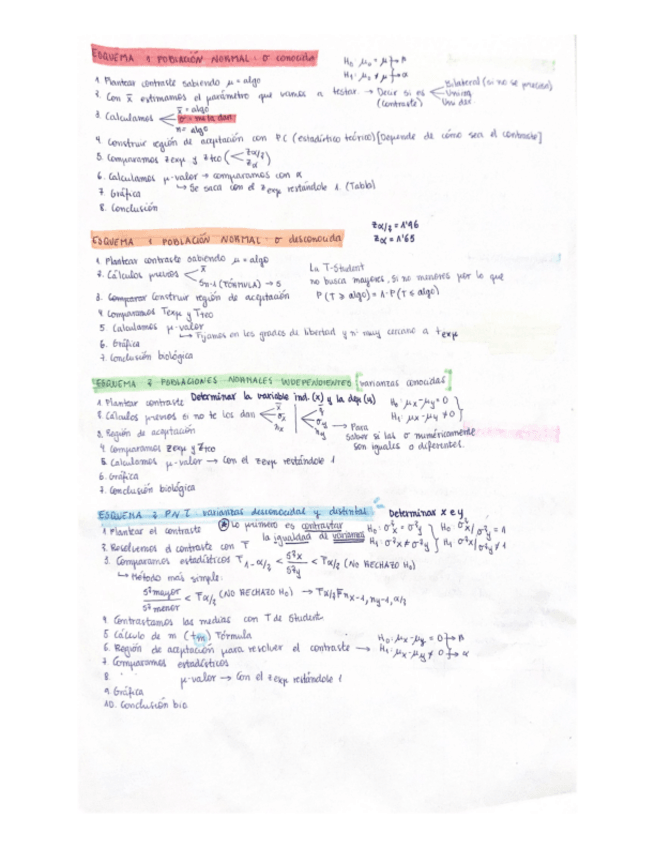 ESQUEMA 1 POBLACIÓN NORMAL: σ conocida
H₀: μ₀ = μ → β
H₁: μ₀ ≠ μ → α
1. Plantear contraste sabiendo μ = algo
2. Con x̄ estimamos el parámetro que vamos a testar → Decir si es (contraste) Bilateral (si no se precisa)
3. Calculamos x̄ = algo
σ = me la dan
n = algo
4. Construir región de aceptación con PC (estadístico teórico) [Depende de cómo sea el contraste]
5. Comparamos Zexp y Zteo (Zα/2 Zα)
6. Calculamos p-valor → comparamos con α
↳ Se saca con el Zexp restándole 1. (Tabla)
7. Gráfica
8. Conclusión
Zα/2 = 1'96
Zα = 1'65
ESQUEMA 1 POBLACIÓN NORMAL: σ desconocida
1. Plantear contraste sabiendo μ = algo
2. Cálculos previos x̄
Sn-1 (FÓRMULA) → S
3. Comparar Construir región de aceptación
4. Comparamos Texp y Tteo
5. Calculamos p-valor
↳ Fijamos en los grados de libertad y nº muy cercano a texp
6. Gráfica
7. Conclusión biológica
La T-Student
no busca mayores, si no menores por lo que
P(T ≥ algo) = 1-P(T ≤ algo)
ESQUEMA 2 POBLACIONES NORMALES INDEPENDIENTES [varianzas conocidas]
1. Plantear contraste Determinar la variable ind. (x) y la dep (y) H₀: μx-μy = 0
H₁: μx-μy ≠ 0
2. Cálculos previos si no te los dan x̄ σx nx | ȳ σy ny → Para
saber si las σ numéricamente
son iguales o diferentes.
3. Región de aceptación
4. Comparamos Zexp y Zteo
5. Calculamos p-valor → Con el Zexp restándole 1
6. Gráfica
7. Conclusión biológica
ESQUEMA 2 P.N.I varianzas desconocidas y distintas Determinar x e y
1. Plantear el contraste ⊛ Lo primero es contrastar
la igualdad de varianzas
H₀: σ²x = σ²y H₀ σ²x/σ²y = 1
H₁: σ²x ≠ σ²y H₁ σ²x/σ²y ≠ 1
2. Resolvemos el contraste con F
3. Comparamos estadísticos F1-α/2 < S²x/S²y < Fα/2 (NO RECHAZO H₀)
↳ Método más simple:
S²mayor/S²menor < Fα/2 (NO RECHAZO H₀) → Fα/2 Fnx-1, ny-1, α/2
4. Contrastamos las medias con T de Student
5. Cálculo de m (tm) Fórmula
6. Región de aceptación para resolver el contraste → H₀: μx-μy = 0 → β
H₁: μx-μy ≠ 0 → α
7. Comparamos estadísticos
8. p-valor → Con el Zexp restándole 1
9. Gráfica
10. Conclusión bio